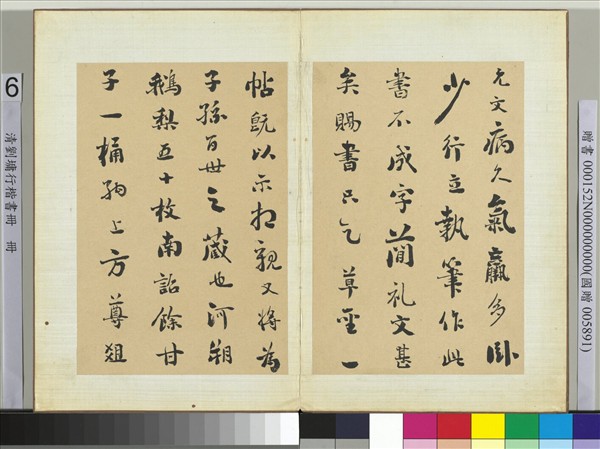 允文病久氣羸多臥
少行立執筆作此
書不成字簡礼文甚
矣賜書只乞草聖一
帖既以示相親又將為
子孫百世之藏也河朔
鵝梨五十枚南詔餘甘
子一桶納上方尊俎
贈書 000152N000000000(國贈 005891)
6
清劉墉行楷書冊 冊